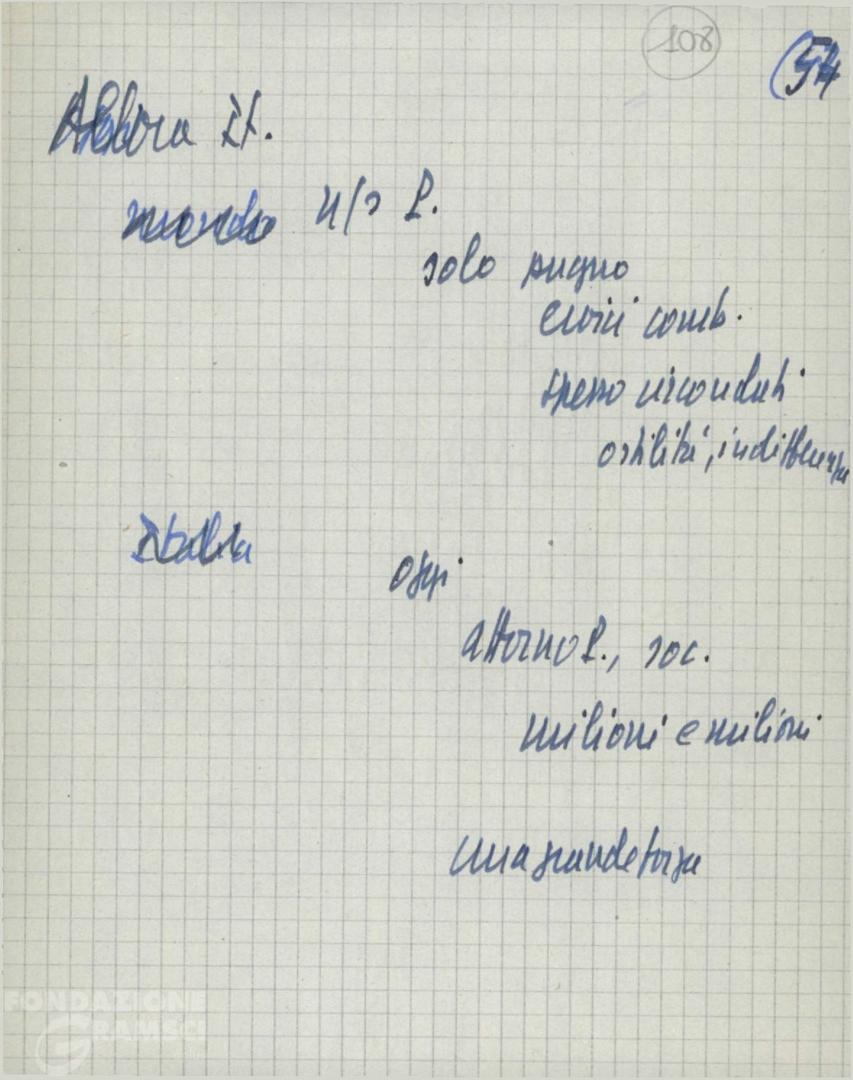 108
(54
Allora It.
mondo n/s P.
solo pugno
eroici comb.
spesso circondati
ostilità, indifferenza
Italia
oggi
attorno P., soc.
milioni e milioni
una grande forza
FONDAZIONE
GRAMSCI